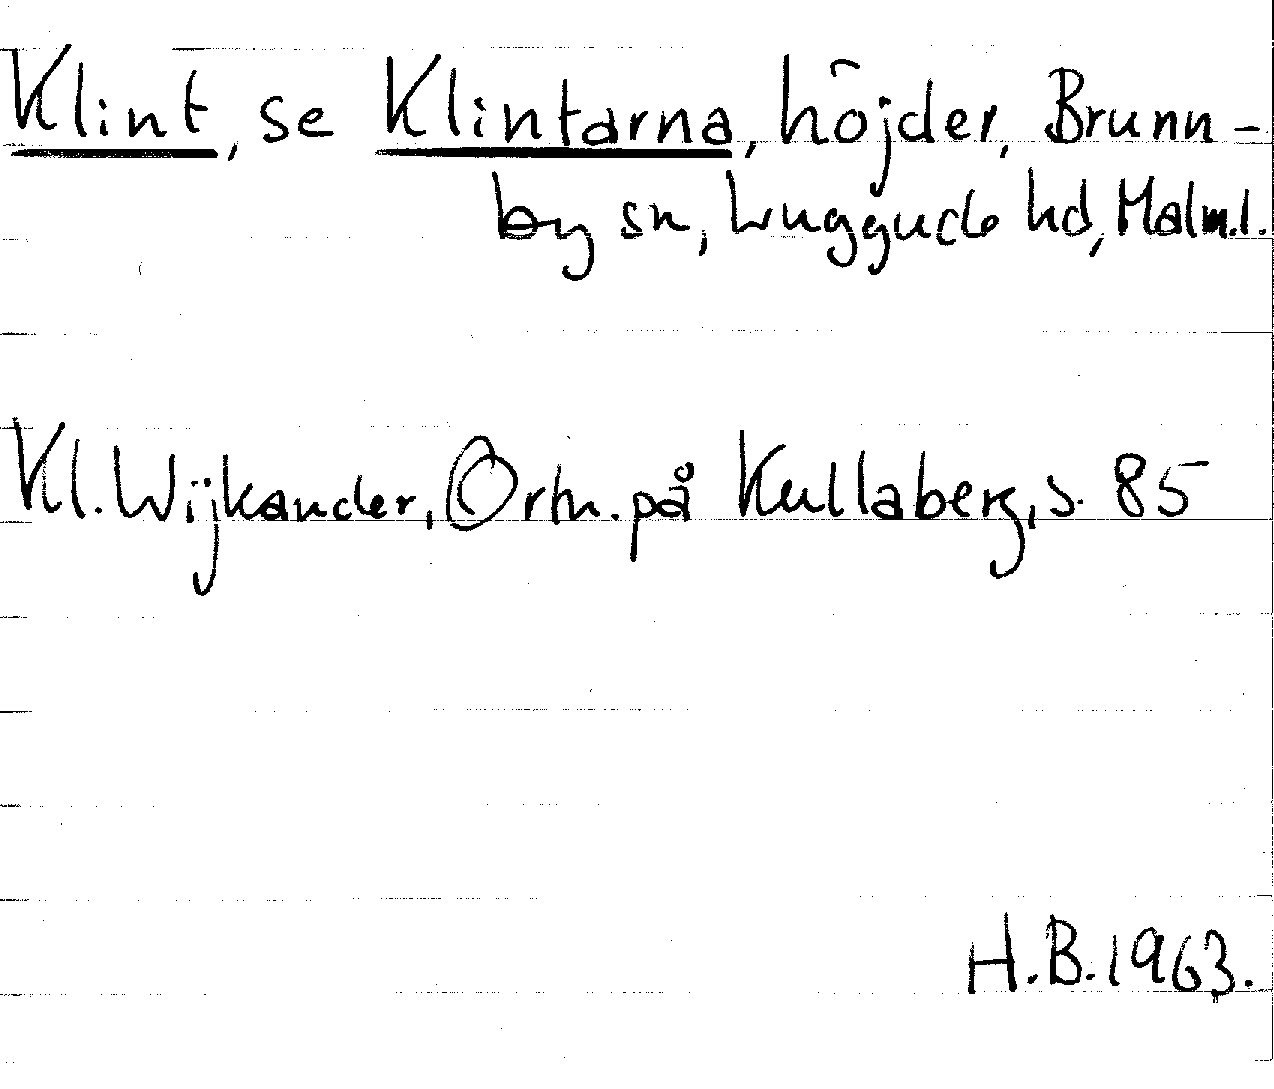 Klint, se Klintarna, höjder, Brunn-
by sn, Luggude hd, Malm.l.
Kl. Wijkander, Ortn. på Kullaberg, s. 85
H.B. 1963.